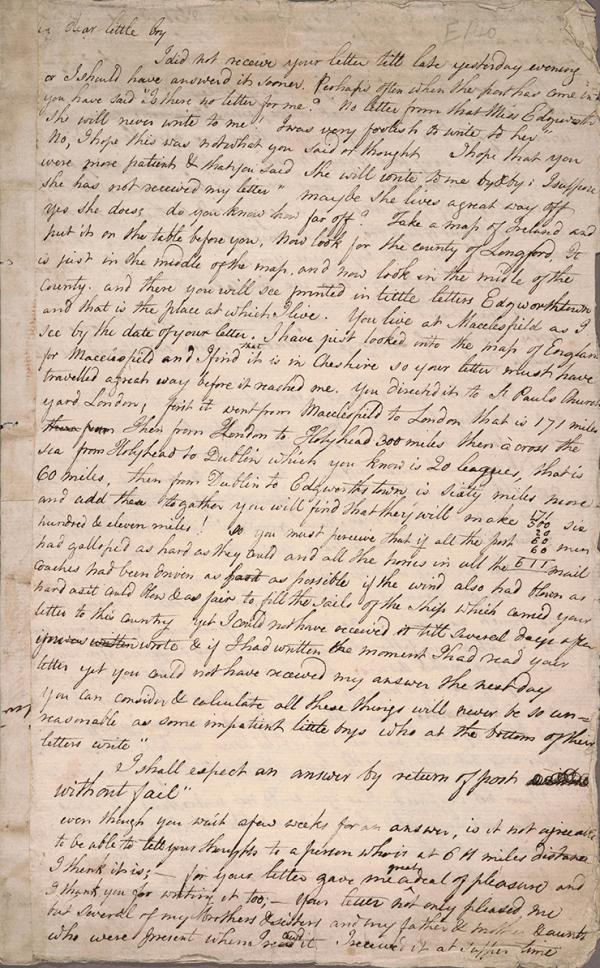 dear little boy
E/40
I did not receive your letter till late yesterday evening
or I should have answerd it sooner. Perhaps often when the post has come in
you have said "Is there no letter for me?" "No letter from that Miss Edgworth
She will never write to me! I was very foolish to write to her"
No, I hope this was not what you said or thought I hope that you
were more patient & that you said She will write to me by & by; I suppose
she has not received my letter" maybe She lives a great way off
Yes she does; do you know how far off? Take a map of Ireland and
put it on the table before you, Now look for the county of Longford, It
is just in the middle of the map, and now look in the midle of the
County. and there you will see printed in little letters Edgworthstown
and that is the place at which I live. You live at Macclesfield as I
see by the date of your letter. I have just looked into the map of England
for Macclesfield and I find that it is in Cheshire so your letter must have
travelled a great way before it reached me. You directed it to St Pauls Church
yard London; first it went from Macclesfield to London that is 171 miles
Then from London to Holyhead 300 miles then a cross the
sea from Holyhead to Dublin which you know is 20 leagues, that is
60 miles, then from Dublin to Edgworthstown is sixty miles more
and add them together you will find that they will make 171 300 20 60 60 six
hundred & eleven miles! So you must perceive that if all the post men
had galloped as hard as they could and all the horses in all the 611 mail
coaches had been driven as fast as possible if the wind also had blown as
hard as it could blow & as fair to fill the sails of the ship which carried your
letter to this country yet I could not have received it till several days after
you wrote & if I had written the moment I had read your
letter yet you could not have received my answer the next day
You can consider & calculate all these things will never be so un=
reasonable as some impatient little boys who at the bottom of their
letters write"
I shall expect an answer by return of post
without fail"
even though you wait a few weeks for an answer, is it not agreeable
to be able to tell your thoughts to a person who is at 611 miles distance
I think it is; — for your letter gave me a great deal of pleasure and
I thank you for writing it too; — Your letter not only pleased me
but several of my brothers & sisters and my father & mother & aunts
who were present when I read it I received it at supper time